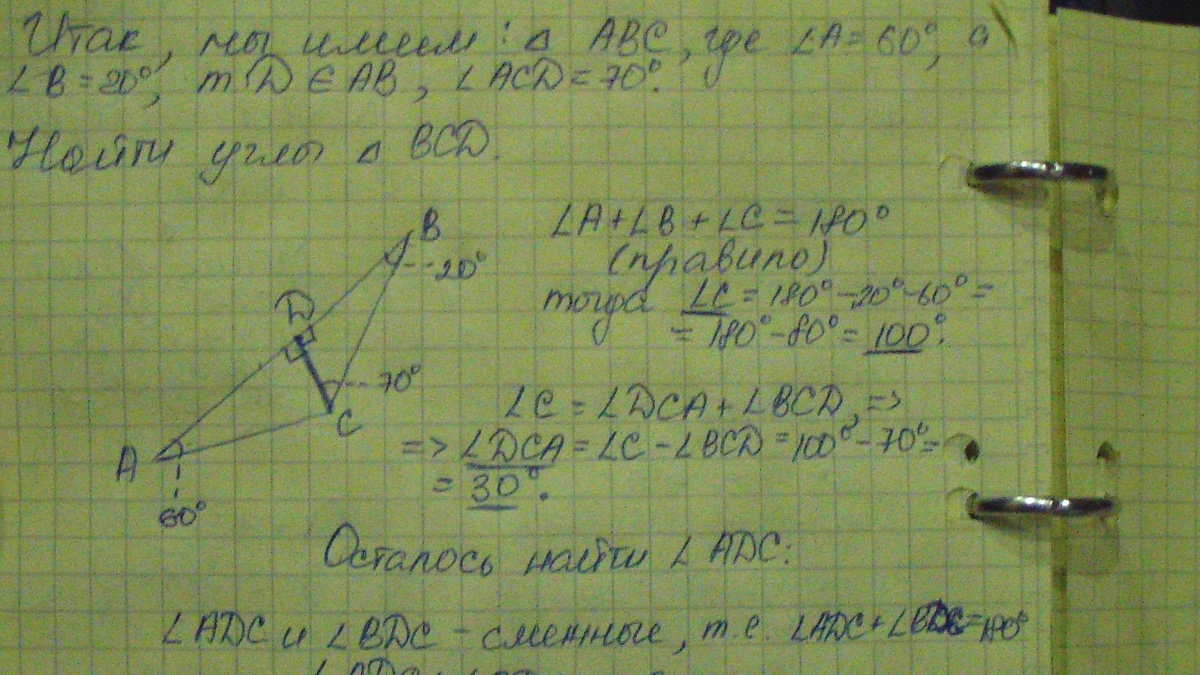 Итак, мы имеем: △ ABC, где ∠A = 60°, а
∠B = 20°, т. D ∈ AB, ∠ACD = 70°.
Найти углы △ BCD.
B
20°
D
70°
C
A
60°
∠A + ∠B + ∠C = 180°
(правило)
тогда ∠C = 180° - 20° - 60° =
= 180° - 80° = 100°.
∠C = ∠DCA + ∠BCD, =>
=> ∠DCA = ∠C - ∠BCD = 100° - 70° =
= 30°.
Осталось найти ∠ADC:
∠ADC и ∠BDC - смежные, т.е. ∠ADC + ∠BDC = 180°